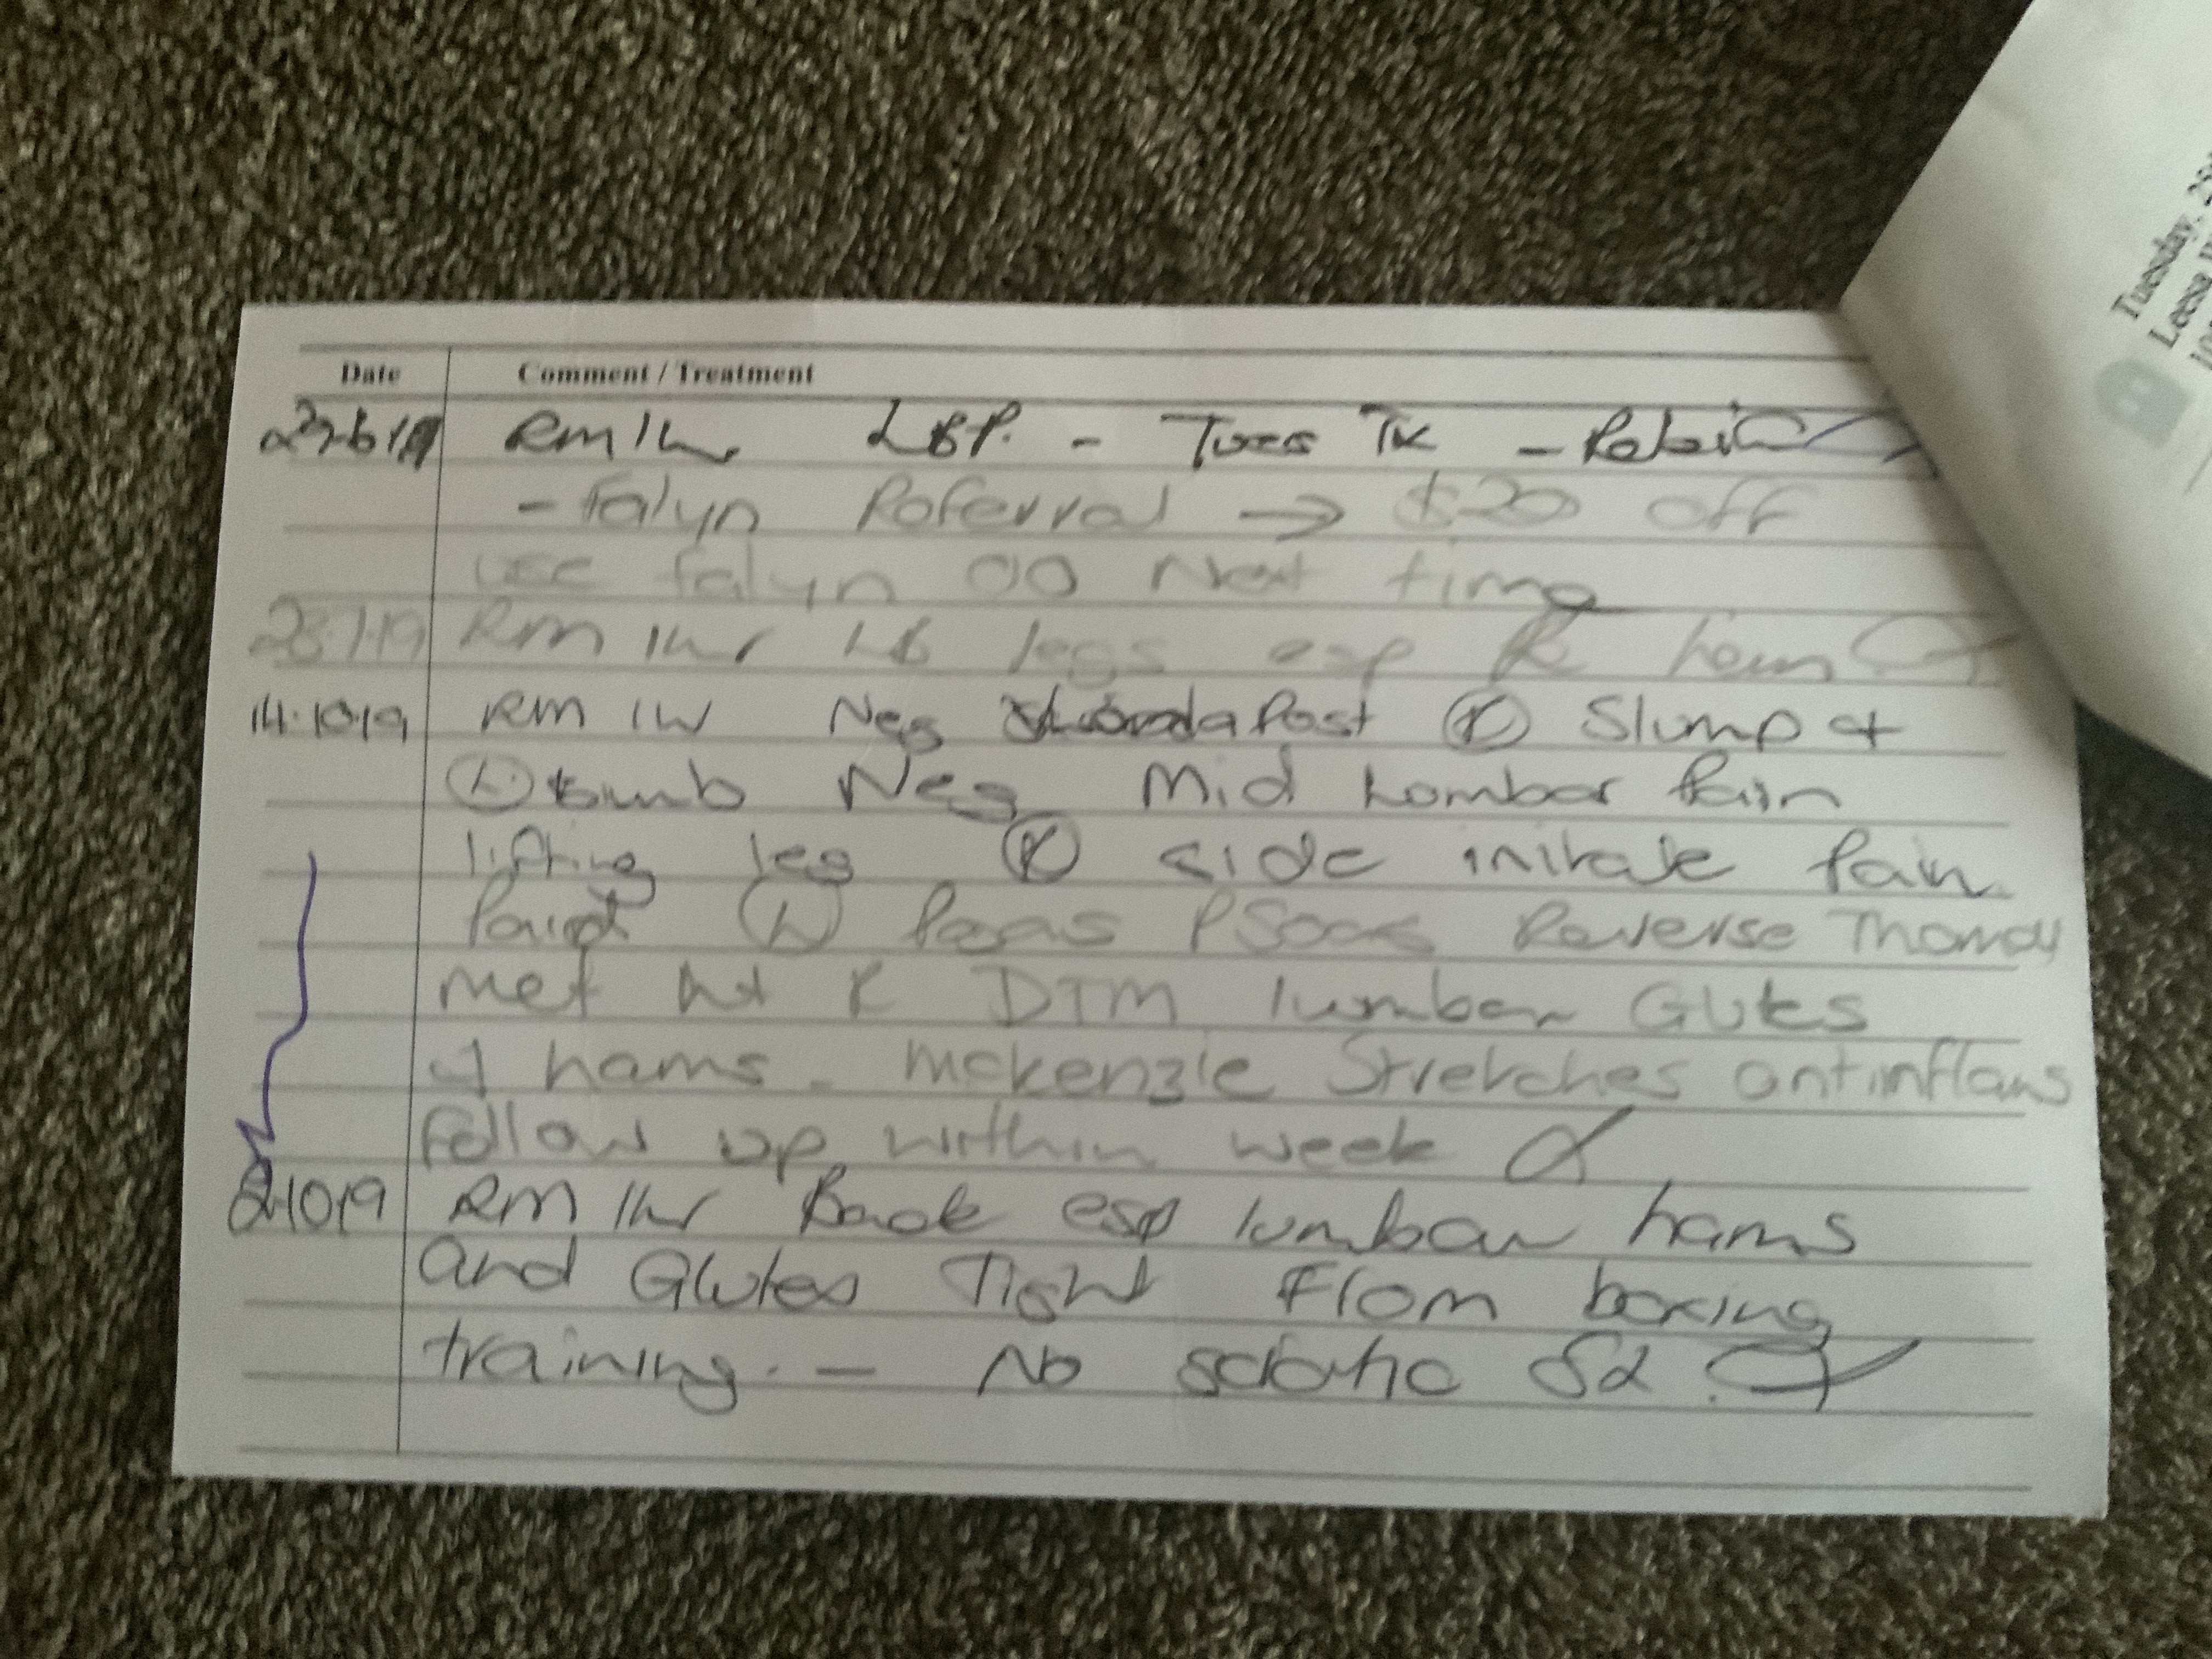 Date Comment / Treatment
RM 1hr LBP. - Tues
- Falyn Referral → $20 off
use falyn 00 Next time
23.7.19 RM 1hr LB legs esp R ham
14.10.19 RM 1hr Neg Post Ⓡ Slump +
Ⓛ Neg Mid Lombar Pain
lifting leg Ⓡ side initate Pain
Ⓛ Psoas Reverse
met R DTM lumbar Glutes
+ hams - Mckenzie Stretches antinflams
Follow up within week
10.19 RM 1hr Back esp lumbar hams
and Glutes Tight From boxing
training. - No sciatic
Tuesday, 25
Leesa